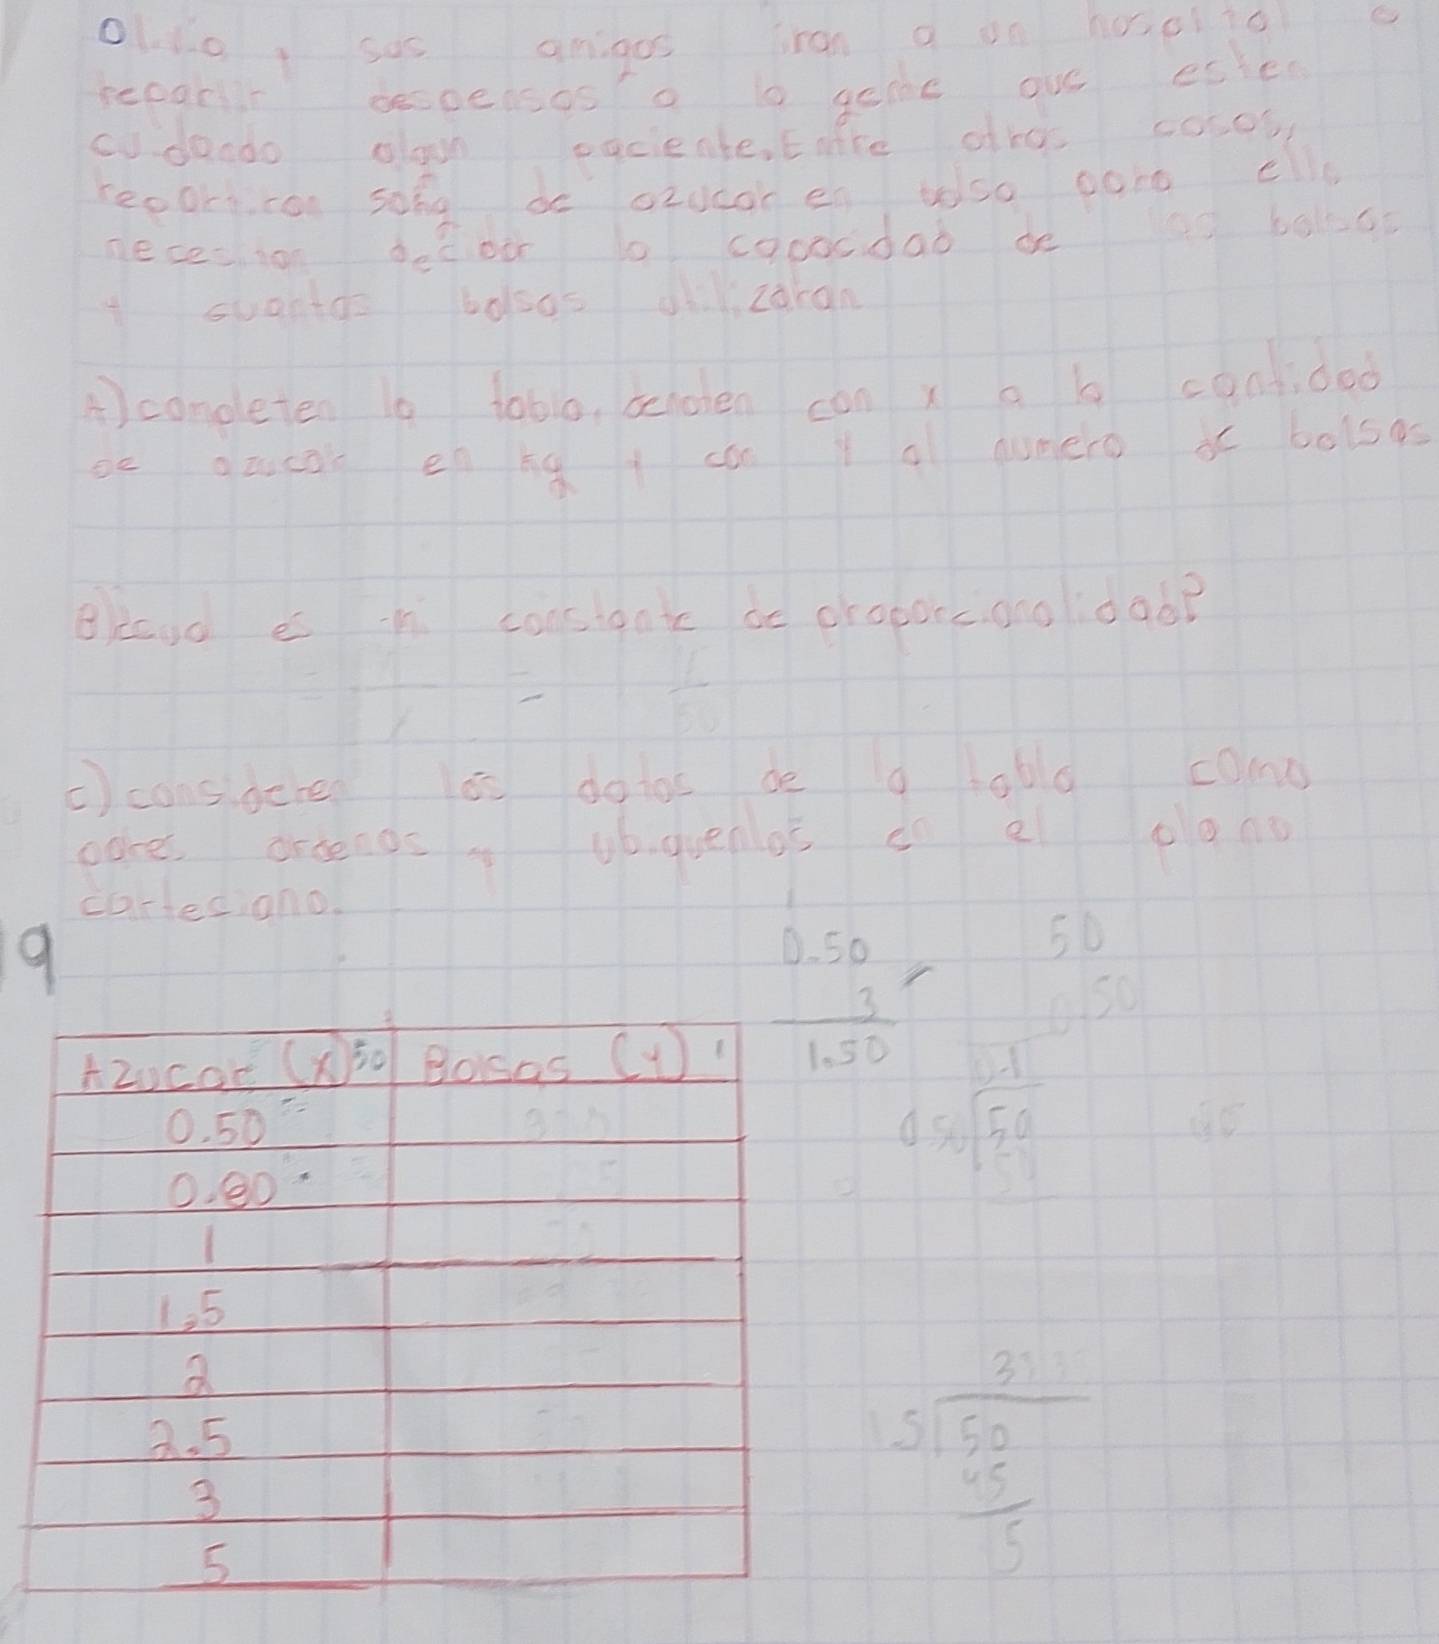 sus amigos iran a un hospital a
repartir despensas a la gente que esten
cuidando algun paciente. Entre otras cosas,
repartiran 50kg de azucar en bolsa para ello
necesitan decidir la capacidad de las bolsas
y cuantas bolsas utilizaran
A) completen la tabla, denoten con x a la cantidad
de azucar en kg y con y al numero de bolsas
B) ¿cual es mi constante de proporcionalidad?
= = 1/50
c) consideren los datos de la tabla como
pares ordenos y ubiquenlos en el plano
cartesiano.
9
0.50
3
1.50
50
0.50
Azucar (x) 50 Bolsas (y) 1
0.50
0.80
1
1.5
2
2.5
3
5
0.1
0.50 50
15 50
45
5